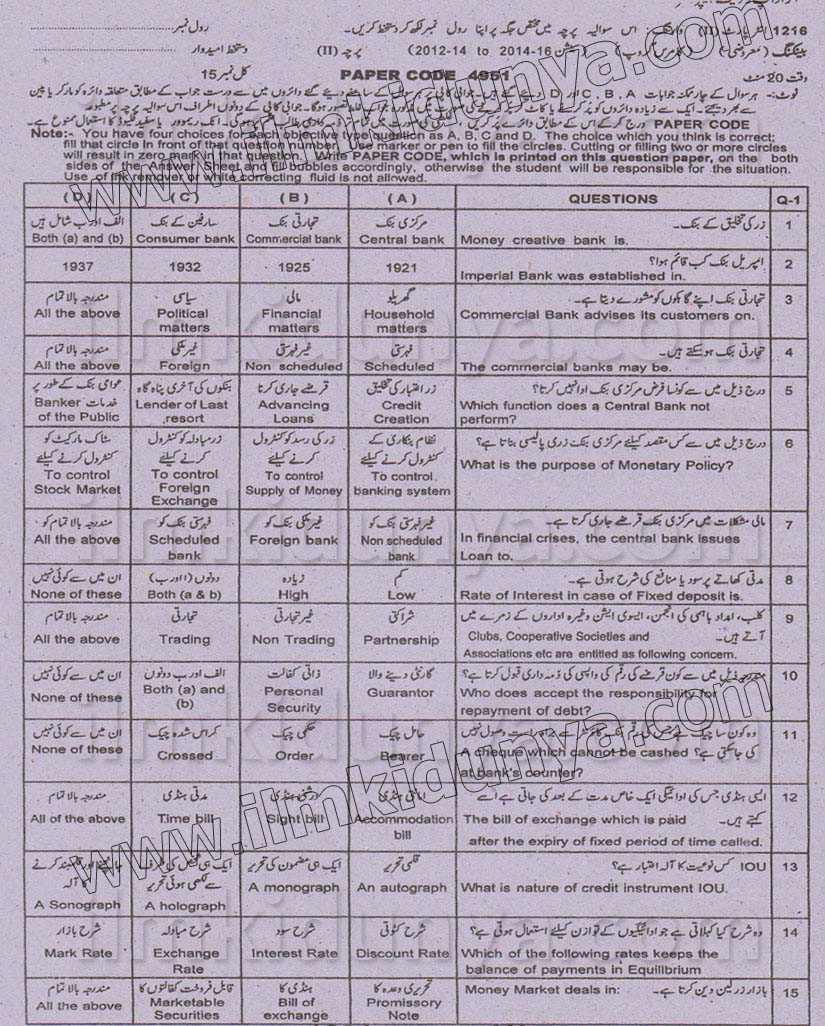 1216 انٹر پارٹ (II) وارننگ: اس سوالیہ پرچہ میں مختص جگہ پر اپنا رول نمبر لکھ کر دستخط کریں۔ رول نمبر
بینکنگ (معروضی) (کامرس گروپ) (سیشن 2014-16 to 2012-14) پرچہ (II) دستخط امیدوار
وقت 20 منٹ PAPER CODE 4951 کل نمبر 15
نوٹ:- ہر سوال کے چار ممکنہ جوابات A , B , C اور D دیئے گئے ہیں۔ جوابی کاپی پر ہر سوال کے سامنے دیئے گئے دائروں میں سے درست جواب کے مطابق متعلقہ دائرہ کو مارکر یا پین
سے بھر دیجئے۔ ایک سے زیادہ دائروں کو پر کرنے یا کاٹ کر پر کرنے کی صورت میں مذکورہ جواب غلط تصور ہوگا۔ جوابی کاپی کے دونوں اطراف اس سوالیہ پرچہ پر مطبوعہ
PAPER CODE درج کر کے اس کے مطابق دائرے پر کریں، ایک ریموور یا سفید فلیوڈ کا استعمال ممنوع ہے۔
Note:- You have four choices for each objective type question as A, B, C and D. The choice which you think is correct;
fill that circle in front of that question number. Use marker or pen to fill the circles. Cutting or filling two or more circles
will result in zero mark in that question. Write PAPER CODE, which is printed on this question paper, on the both
sides of the Answer Sheet and fill bubbles accordingly, otherwise the student will be responsible for the situation.
Use of ink remover or white correcting fluid is not allowed.
( D ) ( C ) ( B ) ( A ) QUESTIONS Q-1
الف اور ب شامل ہیں سارفین کے بنک تجارتی بنک مرکزی بنک زر کی تخلیق کے بنک۔ 1
Both (a) and (b) Consumer bank Commercial bank Central bank Money creative bank is.
امپریل بنک کب قائم ہوا؟ 2
1937 1932 1925 1921 Imperial Bank was established in.
مندرجہ بالا تمام سیاسی مالی گھریلو تجارتی بنک اپنے گاہکوں کو مشورے دیتا ہے۔ 3
All the above Political matters Financial matters Household matters Commercial Bank advises its customers on.
مندرجہ بالا تمام غیر ملکی غیر فہرستی فہرستی تجارتی بنک ہو سکتے ہیں۔ 4
All the above Foreign Non scheduled Scheduled The commercial banks may be.
عوامی بنک کے طور پر خدمات بنکوں کی آخری پناہ گاہ قرضے جاری کرنا زر اعتبار کی تخلیق درج ذیل میں سے کونسا فرض مرکزی بنک ادا نہیں کرتا؟ 5
Banker of the Public Lender of Last resort Advancing Loans Credit Creation Which function does a Central Bank not perform?
سٹاک مارکیٹ کو کنٹرول کرنے کیلئے زر مبادلہ کو کنٹرول کرنے کیلئے زر کی رسد کو کنٹرول کرنے کیلئے نظام بنکاری کے کنٹرول کرنے کیلئے درج ذیل میں سے کس مقصد کیلئے مرکزی بنک زری پالیسی بناتا ہے؟ 6
To control Stock Market To control Foreign Exchange To control Supply of Money To control banking system What is the purpose of Monetary Policy?
مندرجہ بالا تمام کو فہرستی بنک کو غیر ملکی بنک کو غیر فہرستی بنک کو مالی مشکلات میں مرکزی بنک قرضے جاری کرتا ہے۔ 7
All the above Scheduled bank Foreign bank Non scheduled bank In financial crises, the central bank issues Loan to.
ان میں سے کوئی نہیں دونوں (ا اور ب) زیادہ کم مدتی کھاتے پر سود یا منافع کی شرح ہوتی ہے۔ 8
None of these Both (a & b) High Low Rate of Interest in case of Fixed deposit is.
مندرجہ بالا تمام تجارتی غیر تجارتی شراکتی کلب، امداد باہمی کی انجمن، ایسوی ایشن وغیرہ اداروں کے زمرے میں آتے ہیں۔ 9
All the above Trading Non Trading Partnership Clubs, Cooperative Societies and Associations etc are entitled as following concern.
ان میں سے کوئی نہیں الف اور ب دونوں ذاتی کفالت گارنٹی دینے والا مندرجہ ذیل میں سے کون قرضے کی رقم کی واپسی کی ذمہ داری قبول کرتا ہے؟ 10
None of these Both (a) and (b) Personal Security Guarantor Who does accept the responsibility for repayment of debt?
ان میں سے کوئی نہیں کراس شدہ چیک حکمی چیک حامل چیک وہ کون سا چیک ہے جس کی رقم بنک کاؤنٹر سے براہ راست وصول نہیں کی جا سکتی ہے؟ 11
None of these Crossed Order Bearer A cheque which cannot be cashed at bank's counter?
مندرجہ بالا تمام مدتی ہنڈی درشنی ہنڈی امانتی ہنڈی ایسی ہنڈی جس کی ادائیگی ایک خاص مدت کے بعد کی جاتی ہے اسے کہتے ہیں۔ 12
All of the above Time bill Sight bill Accommodation bill The bill of exchange which is paid after the expiry of fixed period of time called.
ایک ہی شخص کی طرف سے لکھی ہوئی تحریر ایک ہی مضمون کی تحریر قلمی تحریر IOU کس نوعیت کا آلہ اعتبار ہے؟ 13
A Sonograph A holograph A monograph An autograph What is nature of credit instrument IOU.
شرح بازار شرح مبادلہ شرح سود شرح کٹوتی وہ شرح کیا کہلاتی ہے جو ادائیگیوں کے توازن کیلئے استعمال ہوتی ہے؟ 14
Mark Rate Exchange Rate Interest Rate Discount Rate Which of the following rates keeps the balance of payments in Equilibrium
مندرجہ بالا تمام قابل فروخت کفالتوں کا ہنڈی کا تحریری وعدہ کا بازار زر لین دین کرتا ہے۔ Money Market deals in: 15
All the above Marketable Securities Bill of exchange Promissory Note
www.ilmkidunya.com
www.ilmkidunya.com
ilmkidunya.com